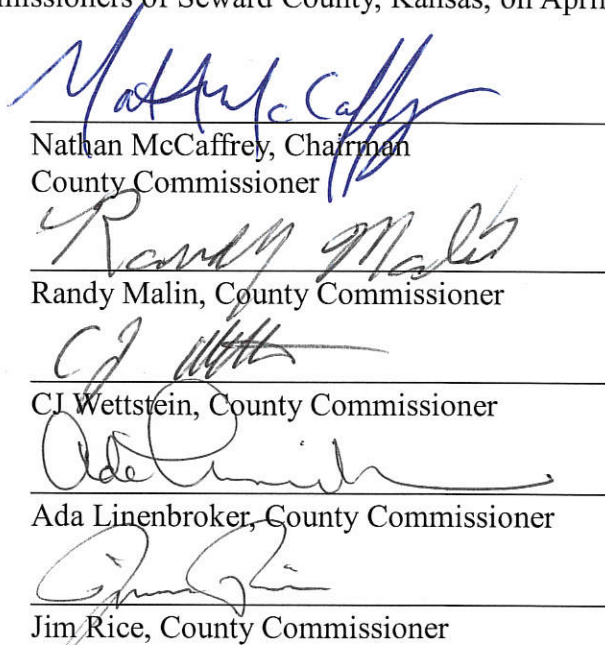 missioners of Seward County, Kansas, on April
Nathan McCaffrey, Chairman
County Commissioner
Randy Malin
Randy Malin, County Commissioner
CJ
CJ Wettstein, County Commissioner
Ada
Ada Linenbroker, County Commissioner
Jim Rice, County Commissioner